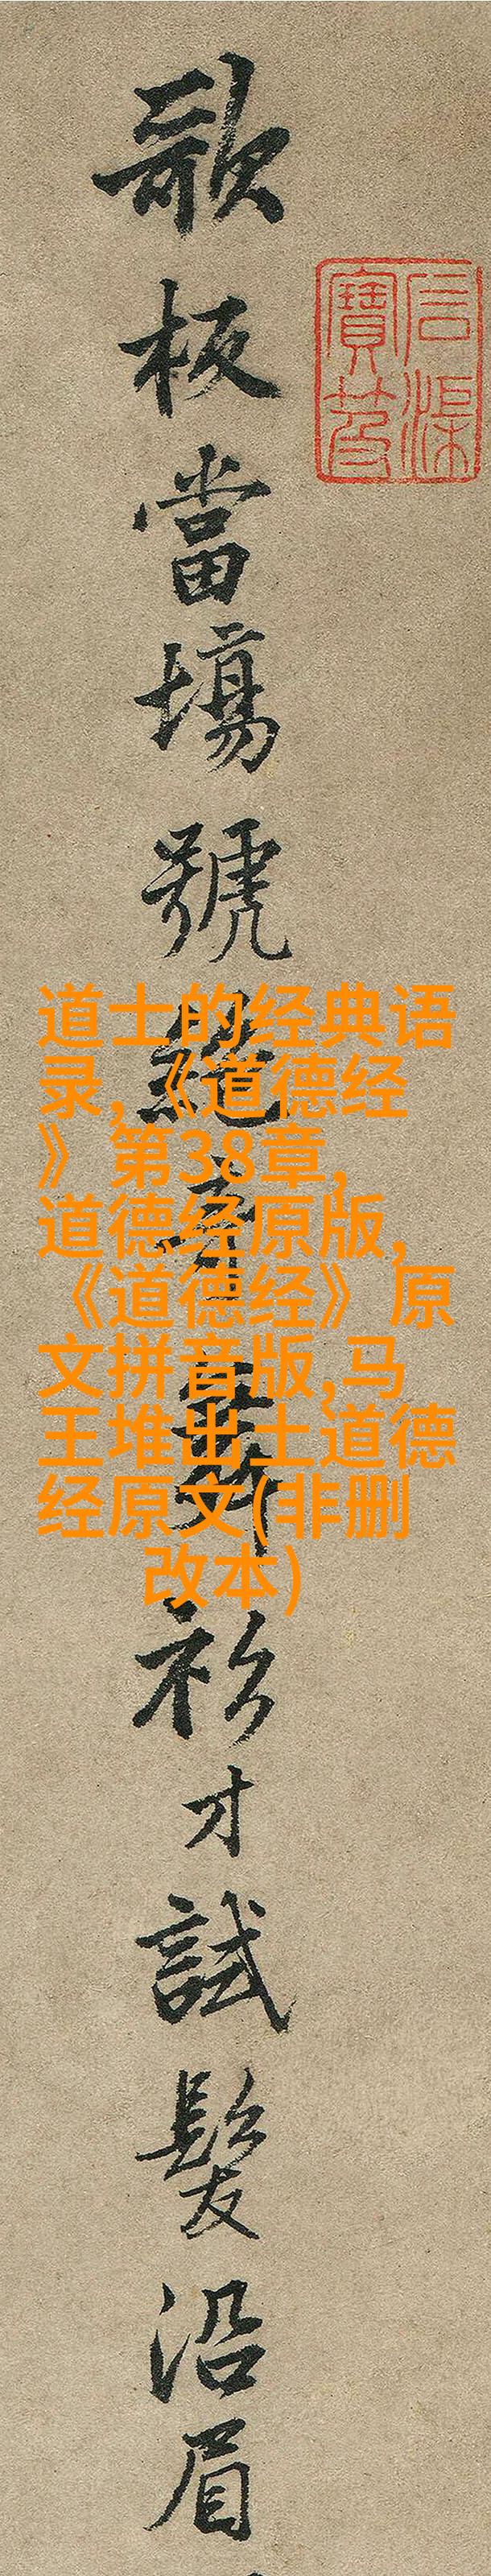 歌板當場號絕奇舞衫才試髮沿眉
石渠
寶笈
道士的经典语
录,《道德经
》 第38章,
道德经原版,
《道德经》 原
文拼音版,马
王堆出土道德
经原文(非删
改本)